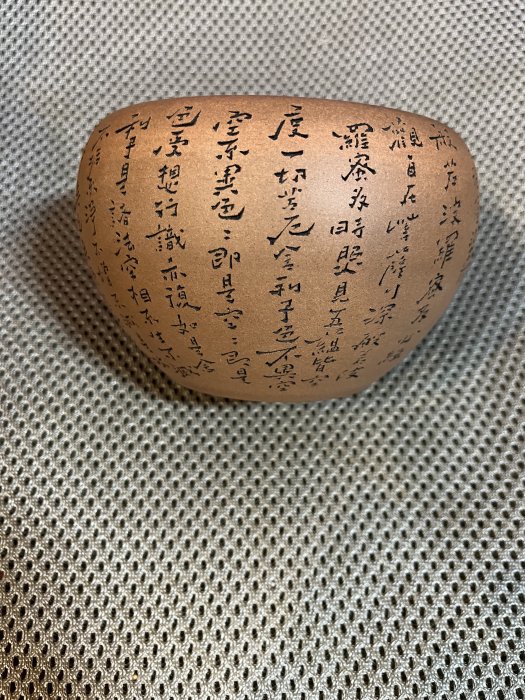 般若波羅蜜多
觀自在菩薩行深般若波
羅蜜多時照見五蘊皆空
度一切苦厄舍利子色不異空
空不異色色即是空空即是
色受想行識亦復如是舍
利子是諸法空相不生不滅
不垢不淨不增不減